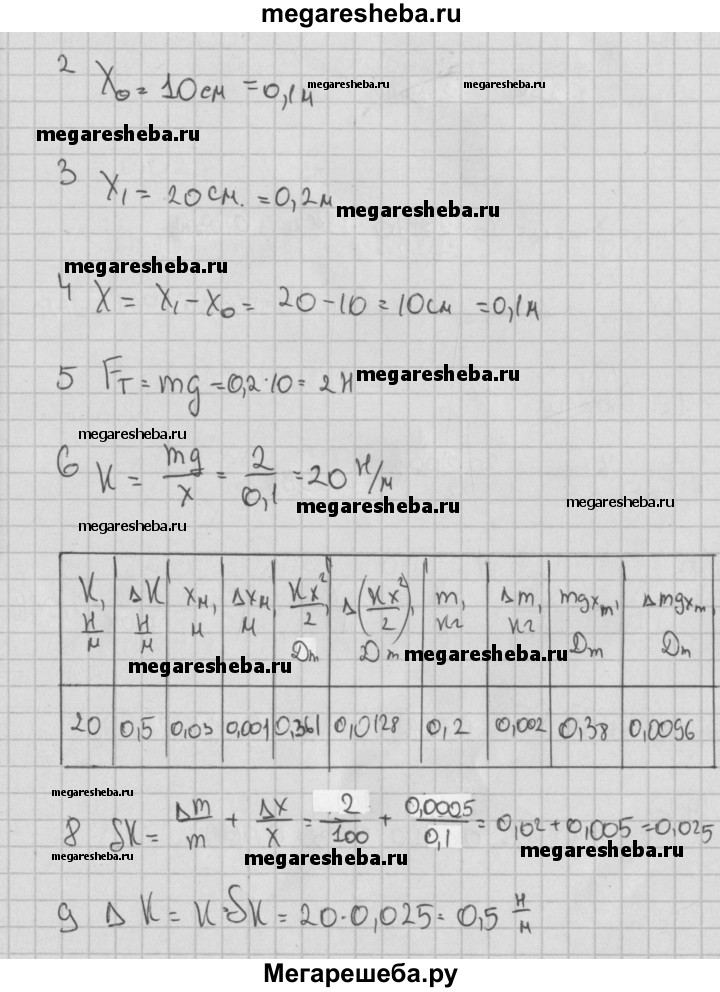 megaresheba.ru
2 X₀ = 10 см = 0,1 м megaresheba.ru megaresheba.ru
megaresheba.ru
3 X₁ = 20 см. = 0,2 м megaresheba.ru
megaresheba.ru
4 X = X₁ - X₀ = 20 - 10 = 10 см = 0,1 м
5 Fт = mg = 0,2·10 = 2 Н megaresheba.ru
megaresheba.ru
6 K = mg/x = 2/0,1 = 20 Н/м megaresheba.ru megaresheba.ru
megaresheba.ru
K, Н/м | ΔK Н/м | xм, м | Δxм м | Kx²/2, Дж | Δ(Kx²/2), Дж | m, кг | Δm, кг | mgxm, Дж | Δmgxm Дж
megaresheba.ru megaresheba.ru
20 | 0,5 | 0,03 | 0,001 | 0,361 | 0,0128 | 0,2 | 0,002 | 0,38 | 0,0096
megaresheba.ru
8 δK = Δm/m + Δx/x = 2/100 + 0,0005/0,1 = 0,02 + 0,005 = 0,025
megaresheba.ru megaresheba.ru megaresheba.ru
9 ΔK = K·δK = 20·0,025 = 0,5 Н/м
Мегарешеба.ру